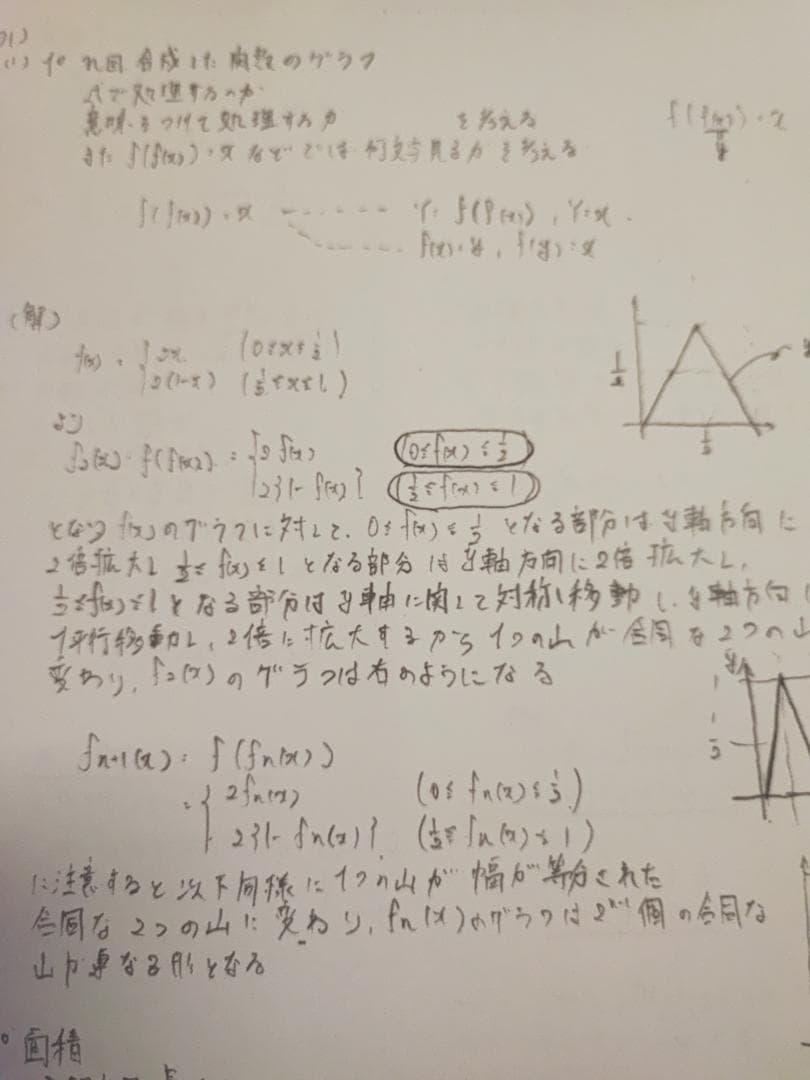 (1) fをn回合成した関数のグラフ
式で処理するのか
意味をつけて処理するか を考える
また f(f(x))=x などでは何文字見るかを考える
f(f(x))=x
f(f(x))=x ------ Y=f(f(x)), Y=x.
f(x)=y, f(y)=x
(解)
f(x)={2x (0≤x≤1/2)
2(1-x) (1/2≤x≤1)
より
f₂(x)=f(f(x))={2f(x) (0≤f(x)≤1/2)
2{1-f(x)} (1/2≤f(x)≤1)
となり f(x)のグラフに対して、0≤f(x)≤1/2 となる部分はy軸方向に
2倍拡大し 1/2≤f(x)≤1となる部分はy軸方向に2倍拡大し、
1/2≤f(x)≤1となる部分はy軸に関して対称移動し、y軸方向に
1平行移動し、2倍に拡大するから1つの山が合同な2つの山
変わり、f₂(x)のグラフは右のようになる
y
1
1/2
fn+1(x)=f(fn(x))
={2fn(x) (0≤fn(x)≤1/2)
2{1-fn(x)} (1/2≤fn(x)≤1)
に注意すると以下同様に1つの山が幅が等分された
合同な2つの山に変わり、fn(x)のグラフは2ⁿ⁻¹個の合同な
山が連なる形となる
○面積